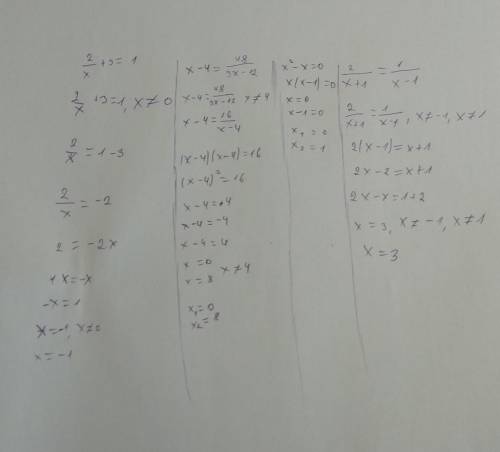 2/x + 3 = 1
2/x + 3 = 1, x ≠ 0
2/x = 1 - 3
2/x = -2
2 = -2x
1x = -x
-x = 1
x = -1, x ≠ 0
x = -1
x - 4 = 48/3x-12
x - 4 = 48/3x-12 x ≠ 4
x - 4 = 16/x-4
(x-4)(x-4) = 16
(x-4)² = 16
x - 4 = ±4
x - 4 = -4
x - 4 = 4
x = 0
x = 8 x ≠ 4
x₁ = 0
x₂ = 8
x² - x = 0
x(x-1) = 0
x = 0
x - 1 = 0
x₁ = 0
x₂ = 1
2/x+1 = 1/x-1
2/x+1 = 1/x-1, x ≠ -1, x ≠ 1
2(x-1) = x+1
2x - 2 = x+1
2x - x = 1+2
x = 3, x ≠ -1, x ≠ 1
x = 3